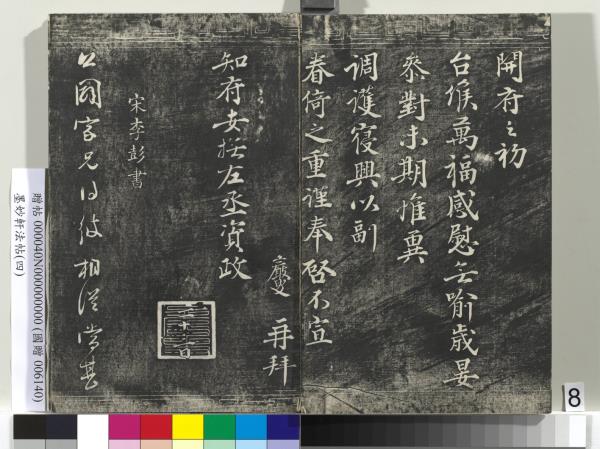 開府之初
台候萬福感慰無喻歲晏
參對未期惟冀
調護寢興以副
眷倚之重謹奉啓不宣
再拜
知府安撫左丞資政
宋李彭書
公國家兄
相從甚
贈帖 000040N000000000 (國贈 006140)
墨妙軒法帖(四)
8